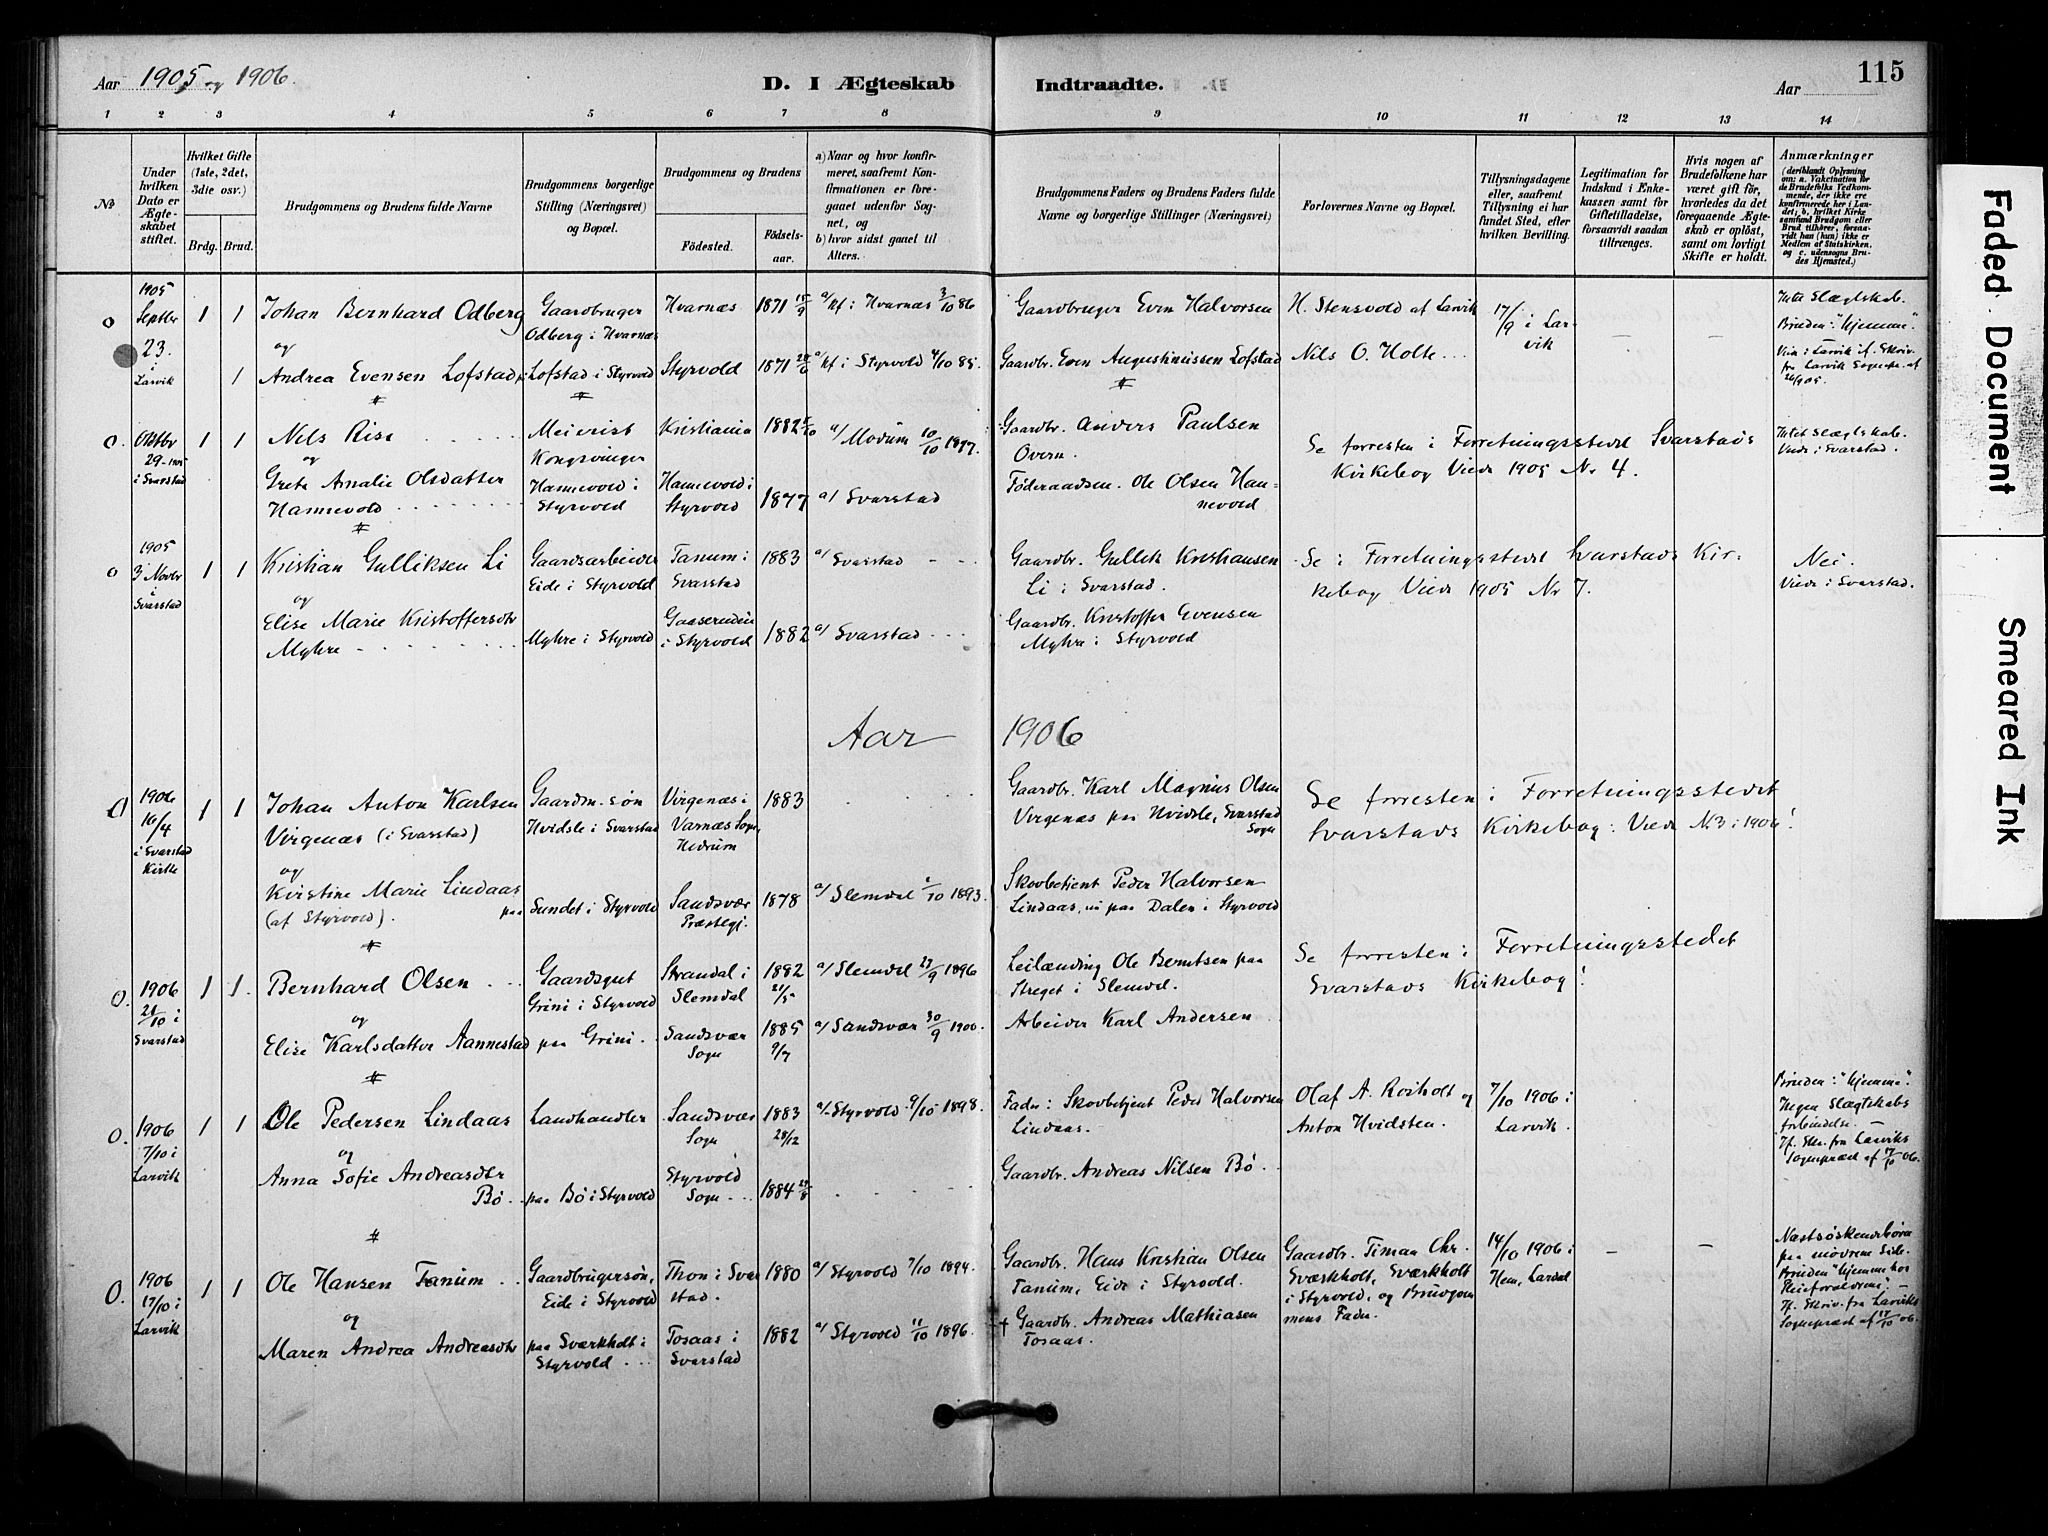 Aar 1905 og 1906.
D. I Ægteskab Indtraadte.
Aar
115
1 2 3 4 5 6 7 8 9 10 11 12 13 14
No
Under hvilken Dato er Ægteskabet stiftet.
Hvilket Gifte (1ste, 2det, 3die osv.)
Brdg. Brud.
Brudgommens og Brudens fulde Navne
Brudgommens borgerlige Stilling (Næringsvei) og Bopæl.
Brudgommens og Brudens
Fødested.
Fødselsaar.
a) Naar og hvor konfirmeret, saafremt Konfirmationen er foregaaet udenfor Sognet, og
b) hvor sidst gaaet til Alters.
Brudgommens Faders og Brudens Faders fulde Navne og borgerlige Stillinger (Næringsvei)
Forlovernes Navne og Bopæl.
Tillysningsdagene eller, saafremt Tillysning ei har fundet Sted, efter hvilken Bevilling.
Legitimation for Indskud i Enkekassen samt for Giftetilladelse, forsaavidt saadan tiltrænges.
Hvis nogen af Brudefolkene har været gift før, hvorledes da det foregaaende Ægteskab er opløst, samt om lovligt Skifte er holdt.
Anmærkninger (deriblandt Oplysning om: a. Vakcination for de Brudefolks Vedkommende, der ikke ere konfirmerede her i Landet; b, hvilket Kirkesamfund Brudgom eller Brud tilhører, forsaavidt han (hun) ikke er Medlem af Statskirken, og c. udensogns Brudes Hjemsted.)
1905 Septbr 23. i Larvik
1 1 Johan Bernhard Odberg
Gaardbruger Odberg i Hvarnæs
Hvarnæs 1871 15/9
a/ kf i Hvarnæs 3/10 86
Gaardbruger Even Halvorsen
H. Stensvold af Larvik
17/9 i Larvik
Intet Slægtskab.
Bruden: "hjemme".
og
1 Andrea Evensen Lofstad
Lofstad i Styrvold
Styrvold 1871
a/ kf i Styrvold 4/10 85.
Gaardbr. Even Augustinussen Lofstad
Nils O. Holte
Oktbr 29-1905 i Svarstad
1 1 Nils Rise
Meierist Kongsvinger
Kristiania 1882
a/ Modum 10/10 1897.
Gaardbr. Anders Paulsen Overn.
Se forresten i Forretningsstedet Svarstads
Kirkebog Viede 1905 Nr 4.
Intet Slægtskab.
Viede i Svarstad.
og
Grete Amalie Olsdatter
Hannevold
Hannevold i Styrvold
Hannevold i Styrvold
1877
a/ Svarstad
Føderaadsm. Ole Olsen Hannevold
1905 3 Novbr i Svarstad
1 1 Kristian Gulliksen Li
Gaardsarbeider Eide i Styrvold
Tanum i Svarstad 1883
a/ Svarstad
Gaardbr. Gullik Kristiansen
Li i Svarstad.
Se i Forretningsstedet Svarstads Kirkebog Viede 1905 Nr 7.
Nei.
Viede i Svarstad.
og
Elise Marie Kristoffersdtr
Myhre
Myhre i Styrvold
i Styrvold 1882
a/ Svarstad
Gaardbr. Kristoffer Evensen
Myhre i Styrvold
Aar 1906
1906 16/4 i Svarstad Kirke
1 1 Johan Anton Karlsen
Virgenæs (i Svarstad)
Gaardm.søn Hvidsle i Svarstad
Virgenæs i Varnæs Sogn, Hedrum
1883
Gaardbr. Karl Magnus Olsen
Virgenæs paa Hvidsle, Svarstad Sogn
Se forresten i Forretningsstedet
Svarstads Kirkebog: Viede Nr 3 i 1906!
og
Kristine Marie Lindaas
(af Styrvold). paa
Sundet i Styrvold
Sandsvær Præstegj.
1878
a/ Slemdal 1/10 1893.
Skovbetjent Peder Halvorsen
Lindaas, nu paa Dalen i Styrvold
1906 21/10 i Svarstad
1 1 Bernhard Olsen
Gaardsgut Grini i Styrvold
Strandal i Slemdal
1882 21/5
a/ Slemdal 27/9 1896
Leilænding Ole Berntsen paa
Streget i Slemdal.
Se forresten i Forretningsstedet
Svarstads Kirkebog!
og
Elise Karlsdatter Aannestad
paa Grini
Sandsvær Sogn
1885 9/7
a/ Sandsvær 30/9 1900.
Arbeider Karl Andersen
1906 7/10 i Larvik
1 1 Ole Pedersen Lindaas
Landhandler
Sandsvær Sogn
1883 28/12
a/ Styrvold 9/10 1898.
Fader: Skovbetjent Peder Halvorsen
Lindaas.
Olaf A. Roiholt og
Anton Hvidsten.
7/10 1906 i Larvik.
Bruden: "hjemme".
Ingen Slægtskabs forbindelse.
Jf. Skr. fra Larviks Sognepræst af
og
Anna Sofie Andreasdtr
Bø
paa Bø i Styrvold
Styrvold Sogn
1884
Gaardbr. Andreas Nilsen Bø
1906 17/10 i Larvik
1 1 Ole Hansen Tanum
Gaardbrugersøn, Eide i Styrvold
Thon i Svarstad.
1880
a/ Styrvold 7/10 1894.
Gaardbr. Hans Kristian Olsen
Tanum, Eide i Styrvold.
Gaardbr. Timan Chr.
Sværkholt, Sværkholt
i Styrvold, og Brudgommens Fader.
14/10 1906 i Hem, Lardal
Næstsøskendebørn paa mødrene Side.
Bruden "hjemme hos Pleieforældrene".
Jf. Skriv. fra Larviks Sognepræst af 17/10 06.
og
Maren Andrea Andreasdtr
paa Sværkholt i Styrvold
Tosaas i Svarstad
1882
a/ Styrvold 11/10 1896.
† Gaardbr. Andreas Mathiasen
Tosaas.
Faded Document
Smeared Ink